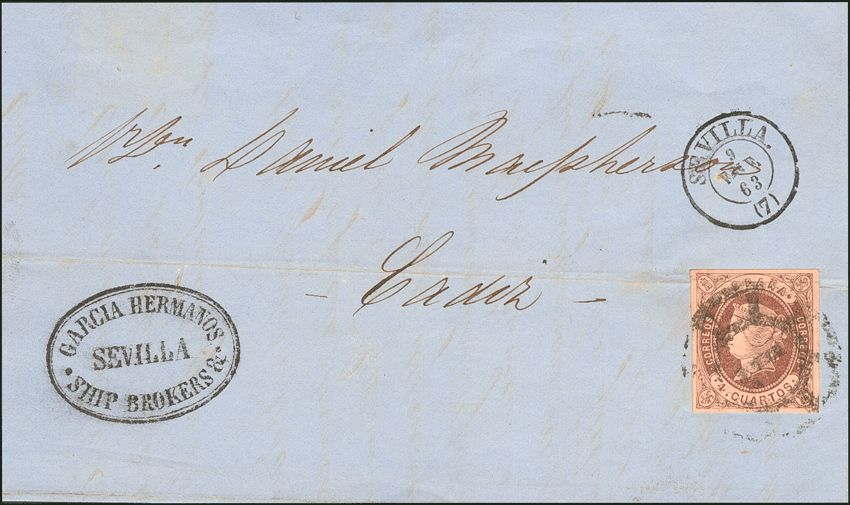 Daniel Macpherson
- Cadiz -
SEVILLA.
9
ENE
63
(7)
GARCIA HERMANOS
SEVILLA
• SHIP BROKERS & •
ESPAÑA.
CORREOS
CORREOS
4 CUARTOS